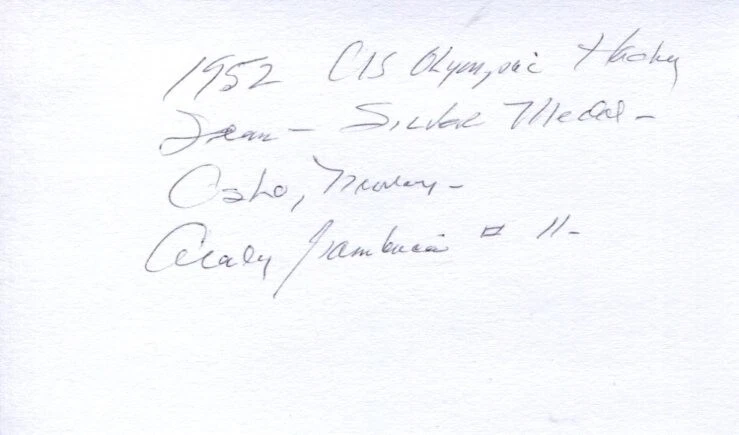 1952 US Olympic Hockey
Team - Silver Medal -
Oslo, Norway -
Andy Gambucci # 11-